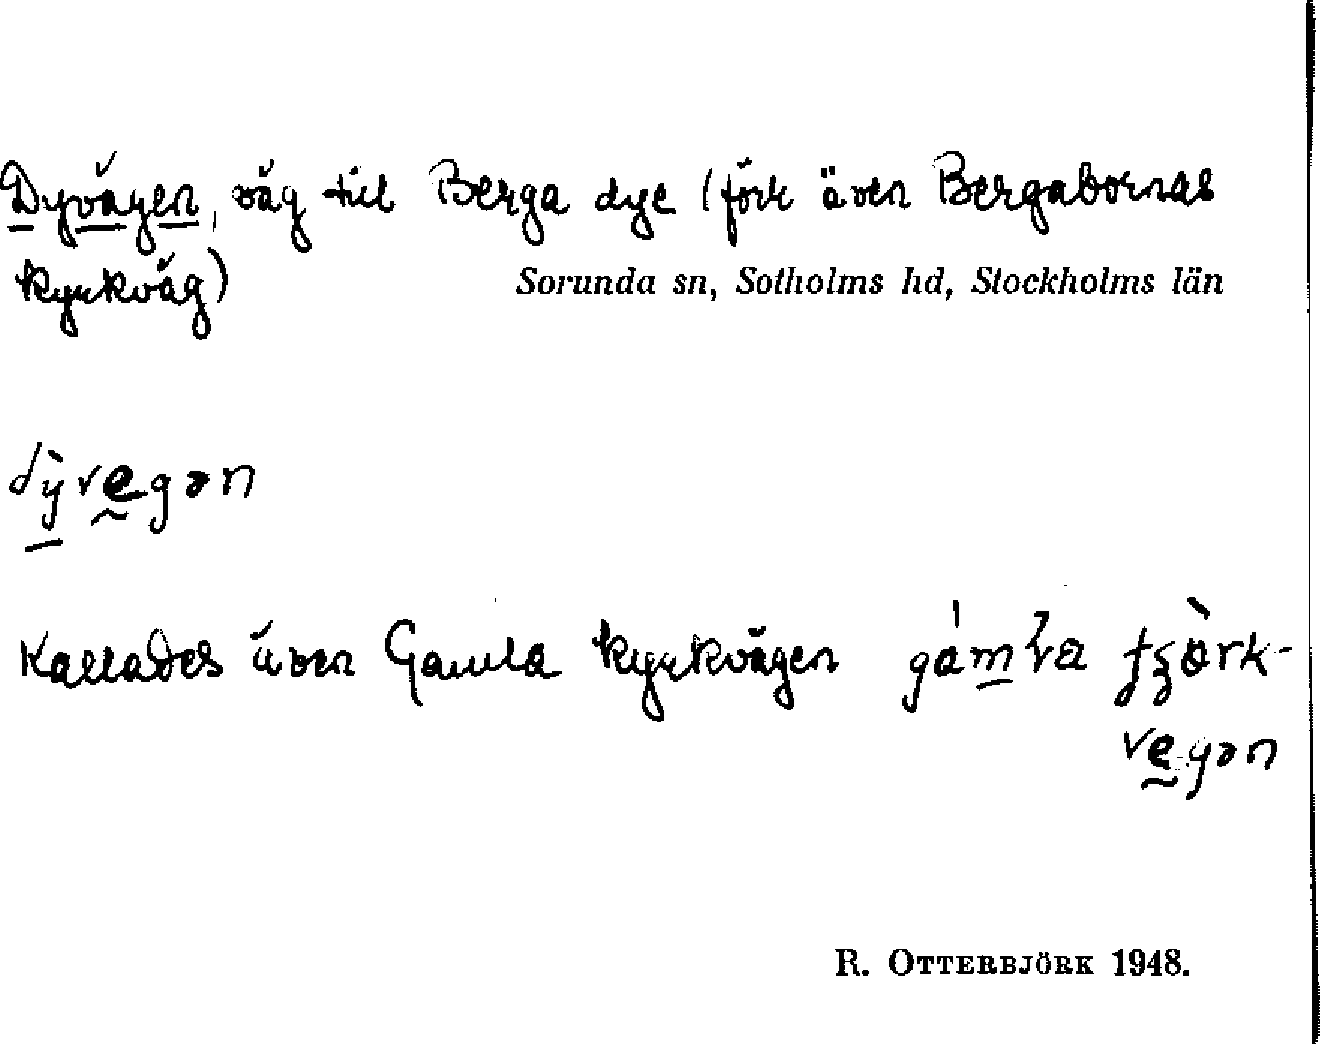 Dyvägen, väg till Berga dye (förr även Bergabornas
kyrkväg)
Sorunda sn, Sotholms hd, Stockholms län
dỳvegən
Kallades även Gamla kyrkvägen gámla
vegən
R. OTTERBJÖRK 1948.